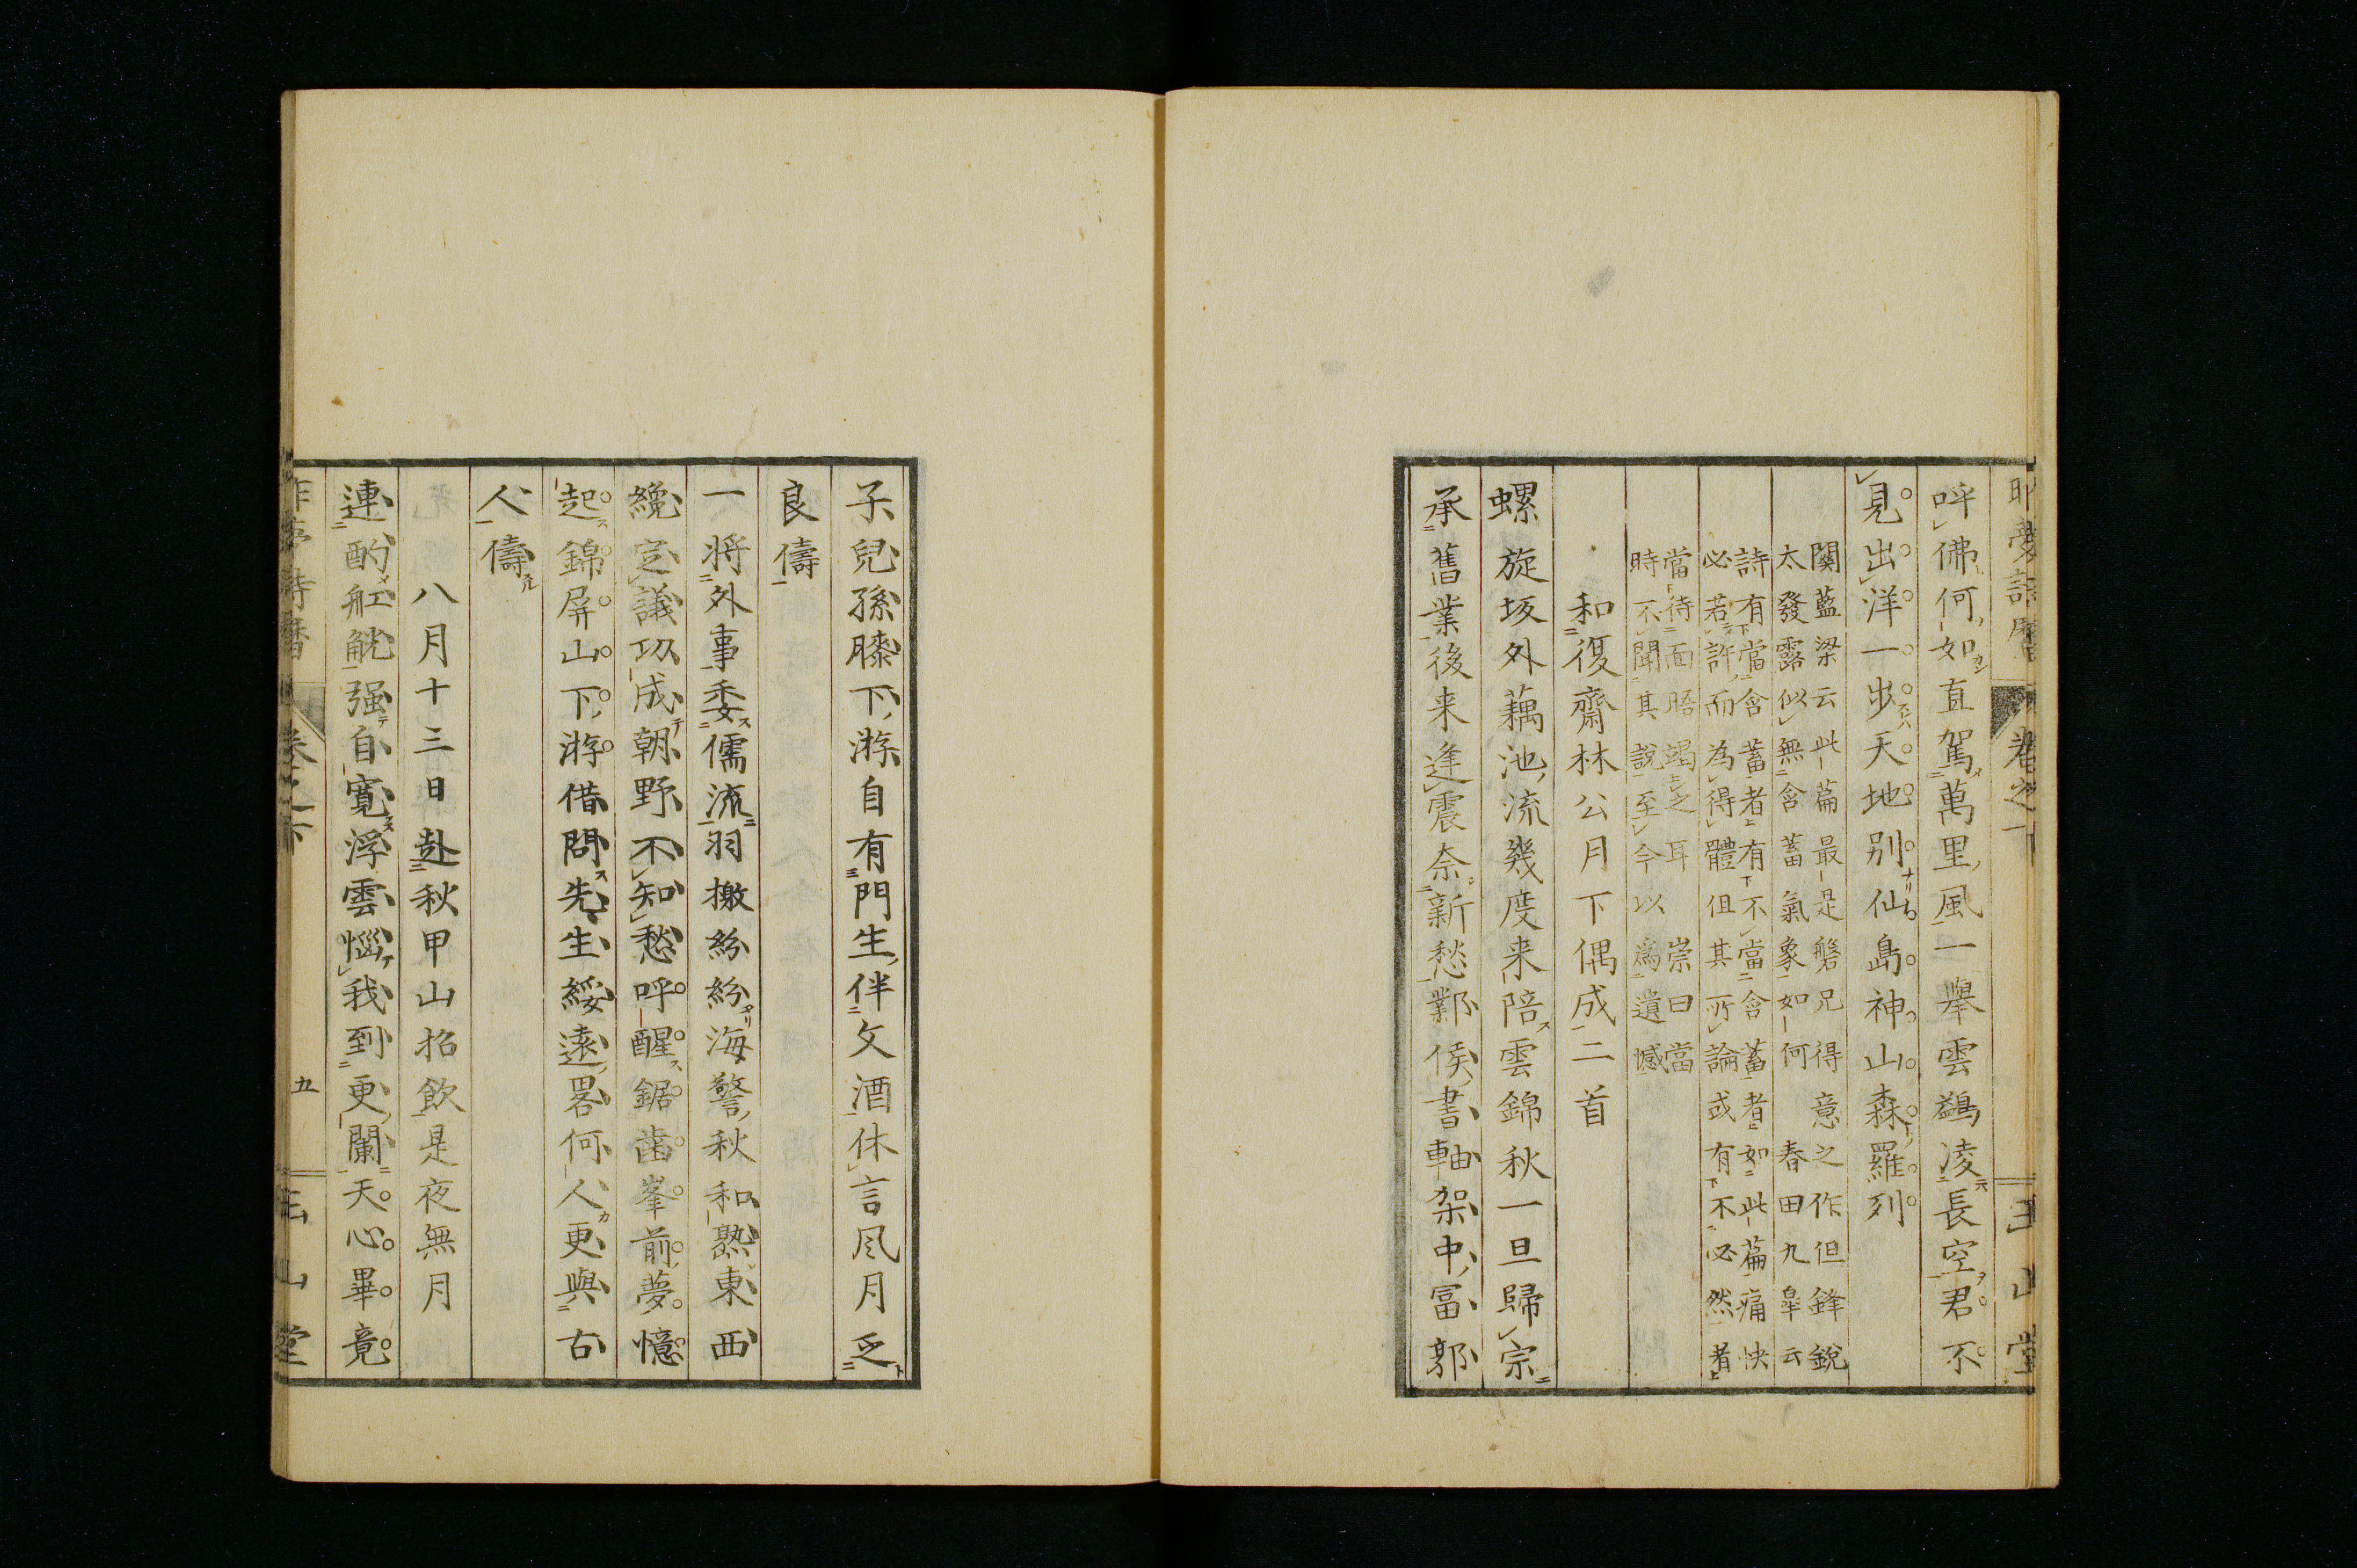 呼佛何如直駕萬里風一擧雲鷁凌長空君不
見出洋一步天地別仙島神山森羅列
關藍梁云此篇最是磐兄得意之作但鋒銳
太發露似無含蓄氣象如何 春田九皐云
詩有當含蓄者有不當含蓄者如此篇痛快
必若許而為得體但其所論或有不必然者
當待面晤竭之耳 崇曰當
時不聞其說至今以為遺憾
和復齋林公月下偶成二首
螺旋坂外藕池流幾度来陪雲錦秋一旦歸宗
承舊業後来逢震奈新愁鄴侯書軸架中富郭
子兒孫膝下游自有門生伴文酒休言風月乏
良儔
一將外事委儒流羽檄紛紛海警秋和熟東西
纔定議功成朝野不知愁呼醒鋸齒峯前夢憶
起錦屏山下游借問先生綏遠畧何人更與古
人儔
八月十三日赴秋甲山招飲是夜無月
連酌舡觥强自寬浮雲惱我到更闌天心畢竟
卷之下
五
玉山堂